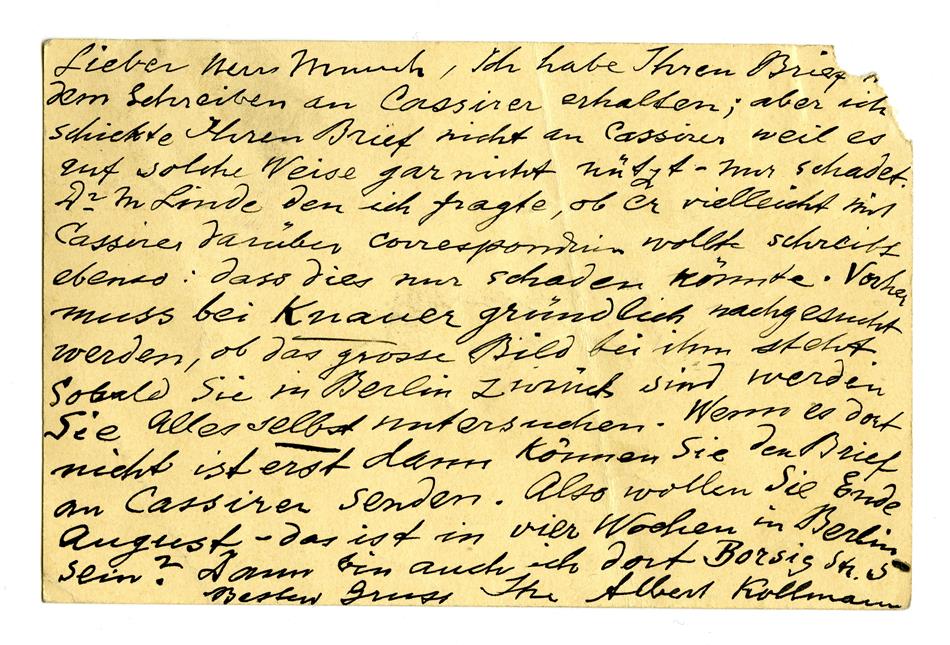 Lieber Herr Munch, Ich habe Ihren Brief
dem Schreiben an Cassirer erhalten; aber ich
schickte Ihren Brief nicht an Cassirer weil es
auf solche Weise gar nicht nützt - nur schadet.
Dr M Linde den ich fragte, ob Er vielleicht mit
Cassirer darüber correspondiren wollte schreibt
ebenso: dass dies nur schaden könnte. Vorher
muss bei Knauer gründlich nachgesucht
werden, ob das grosse Bild bei ihm steht
Sobald Sie in Berlin zurück sind werden
Sie Alles selbst untersuchen. Wenn es dort
nicht ist erst dann können Sie den Brief
an Cassirer senden. Also wollen Sie Ende
August - das ist in vier Wochen in Berlin
sein? Dann bin auch ich dort Borsig Str. 5
Besten Gruss Ihr Albert Kollmann